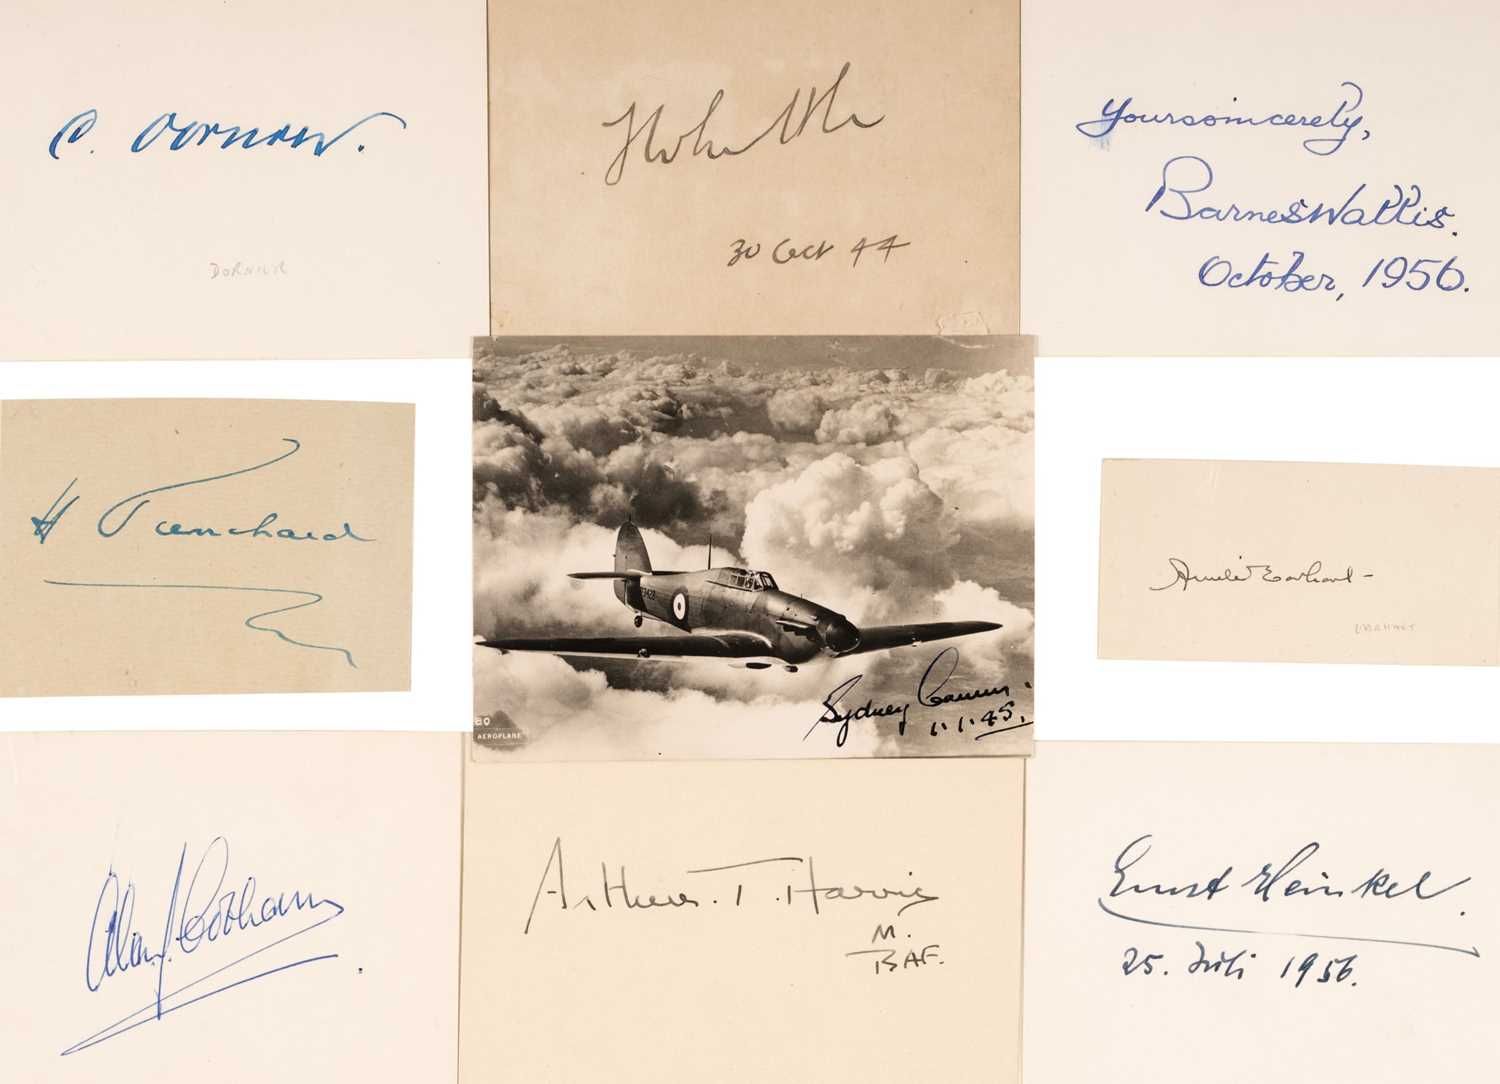 C. Dornier.
DORNIER
30 Oct 44
Yours sincerely,
Barnes Wallis.
October, 1956.
H Trenchard
80
AEROPLANE
Sydney Camm.
1.1.45.
Amelia Earhart -
EARHART
Alan J. Cobham.
Arthur. T. Harris
M.
RAF.
Ernst Heinkel.
25. Juli 1956.